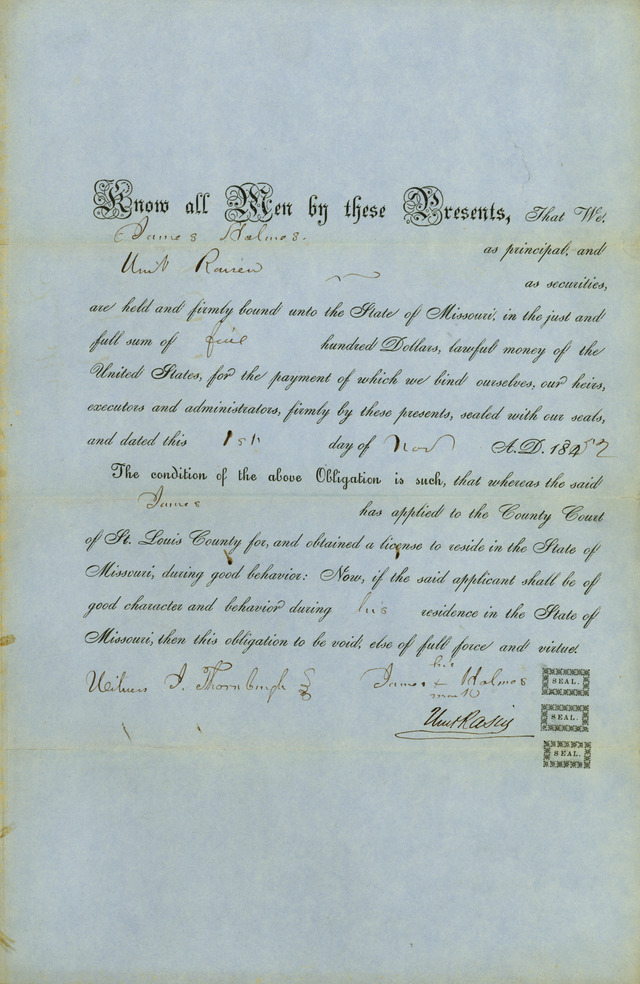 Know all Men by these Presents, That We,
James Holmes.
as principal, and
Unit Rasin
as securities,
are held and firmly bound unto the State of Missouri, in the just and
full sum of five hundred Dollars, lawful money of the
United States, for the payment of which we bind ourselves, our heirs,
executors and administrators, firmly by these presents, sealed with our seals,
and dated this 1st day of Nov A.D. 18452
The condition of the above Obligation is such, that whereas the said
James has applied to the County Court
of St. Louis County for, and obtained a license to reside in the State of
Missouri, during good behavior: Now, if the said applicant shall be of
good character and behavior during his residence in the State of
Missouri, then this obligation to be void, else of full force and virtue.
Witness J. Thornburgh
his
James + Holmes
mark
SEAL.
Unit Rasin
SEAL.
SEAL.